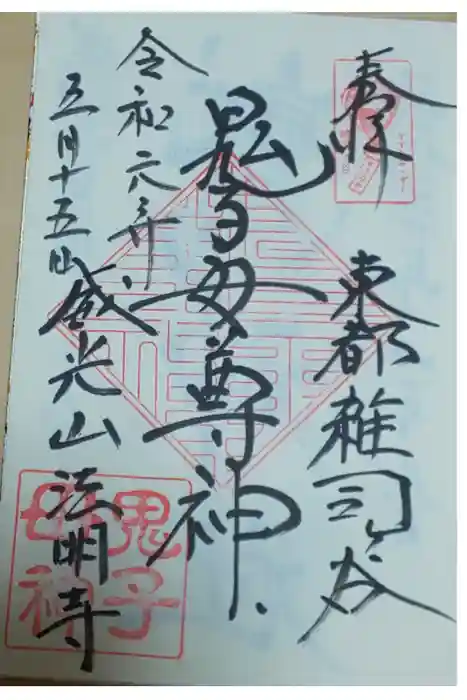 奉拝
東都雑司ヶ谷
鬼子母尊神
令和六年
五月十五日
威光山法明寺
鬼子
母神